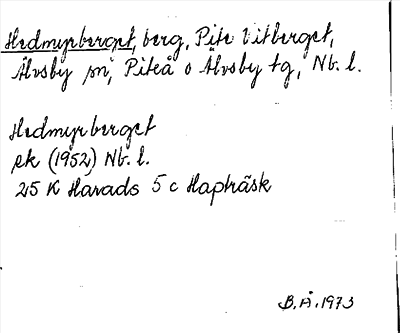 Hedmyrberget, berg, Pite Vitberget,
Älvsby sn, Piteå o Älvsby tg, Nb. l.
Hedmyrberget
ek (1952) Nb. l.
25 K Harads 5 c Hapträsk
B.Å. 1973